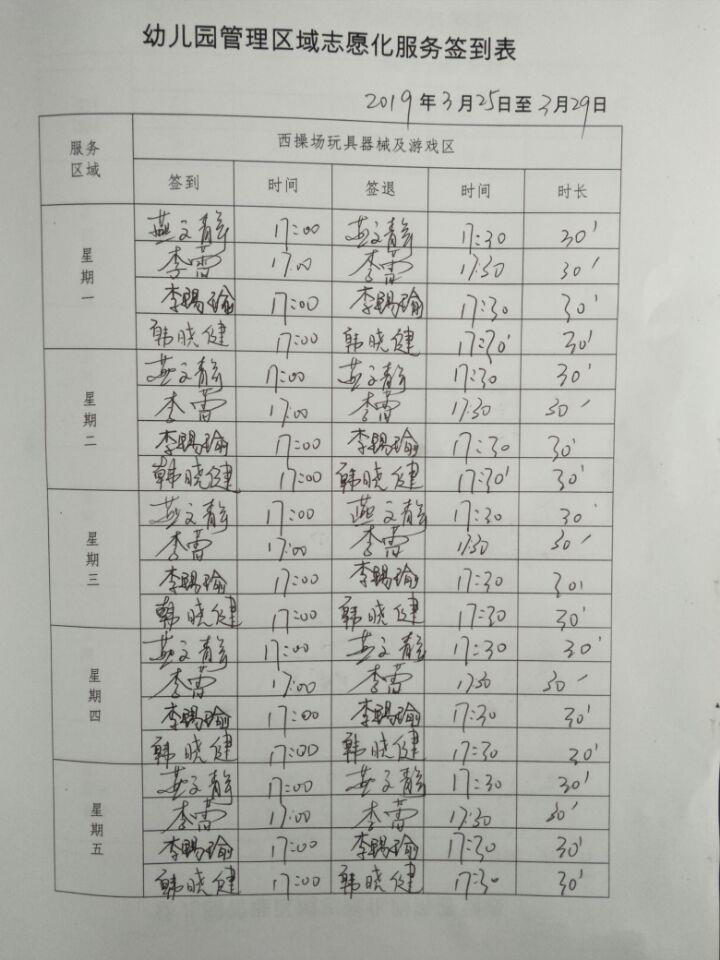 幼儿园管理区域志愿化服务签到表
2019年3月25日至3月29日
服务区域 西操场玩具器械及游戏区
签到 时间 签退 时间 时长
星期一
燕文静 17:00 燕文静 17:30 30'
李蕾 17:00 李蕾 17:30 30'
李赐瑜 17:00 李赐瑜 17:30 30'
韩晓健 17:00 韩晓健 17:30' 30'
星期二
燕文静 17:00 燕文静 17:30 30'
李蕾 17:00 李蕾 17:30 30'
李赐瑜 17:00 李赐瑜 17:30 30'
韩晓健 17:00 韩晓健 17:30' 30'
星期三
燕文静 17:00 燕文静 17:30 30'
李蕾 17:00 李蕾 17:30 30'
李赐瑜 17:00 李赐瑜 17:30 30'
韩晓健 17:00 韩晓健 17:30 30'
星期四
燕文静 17:00 燕文静 17:30 30'
李蕾 17:00 李蕾 17:30 30'
李赐瑜 17:00 李赐瑜 17:30 30'
韩晓健 17:00 韩晓健 17:30 30'
星期五
燕文静 17:00 燕文静 17:30 30'
李蕾 17:00 李蕾 17:30 30'
李赐瑜 17:00 李赐瑜 17:30 30'
韩晓健 17:00 韩晓健 17:30 30'